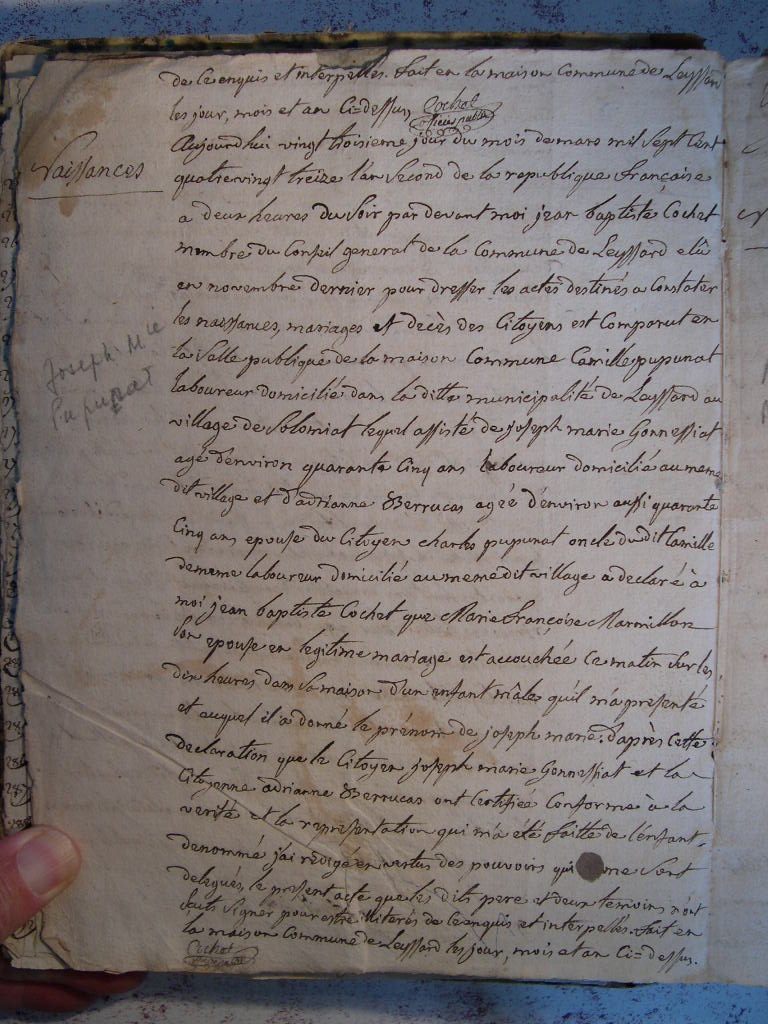 de Ce enquis et interpellés. fait en la maison Commune de Leyssard
les jour, mois et an Ci=dessus Cochet
officier public
Naissances
Aujourd'hui vingt troisieme jour du mois de mars mil Sept Cent
quatre vingt treize l'an Second de la republique française
a deux heures du Soir par devant moi jean baptiste Cochet
membre du Conseil general de la Commune de Leyssard elû
en novembre dernier pour dresser les actes destinés a Constater
les naissances, mariages et decès des Citoyens est Comparut en
la Salle publique de la maison Commune Camille pupunat
laboureur domicilié dans la ditte municipalité de Leyssard au
village de Solomiat lequel assisté de joseph marie Gonnessiat
agé d'environ quarante Cinq ans laboureur domicilié au meme
dit village et d'adrianne Berrucas agée d'environ aussi quarante
Cinq ans epouse du Citoyen charles pupunat oncle du dit Camille
de meme laboureur domicilié au meme dit village a declaré à
moi jean baptiste Cochet que Marie françoise Marmillon
Son epouse en legitime mariage est accouchée Ce matin Sur les
dix heures dans Sa maison d'un enfant mâle qu'il m'a presenté
et auquel il a donné le prénom de joseph marie. d'après Cette
declaration que le Citoyen joseph marie Gonnessiat et la
Citoyenne adrianne Berrucas ont Certifiée Conforme à la
verité et la representation qui m'a été faitte de l'enfant
denommé j'ai redigé en vertus des pouvoirs qui me Sont
delegués, le present acte que les dits pere et deux temoins n'ont
Sauts Signer pour estre illiterés de Ce enquis et interpellés. fait en
la maison Commune de Leyssard les jour, mois et an Ci=dessus.
Cochet
Joseph Mie
Pupunat